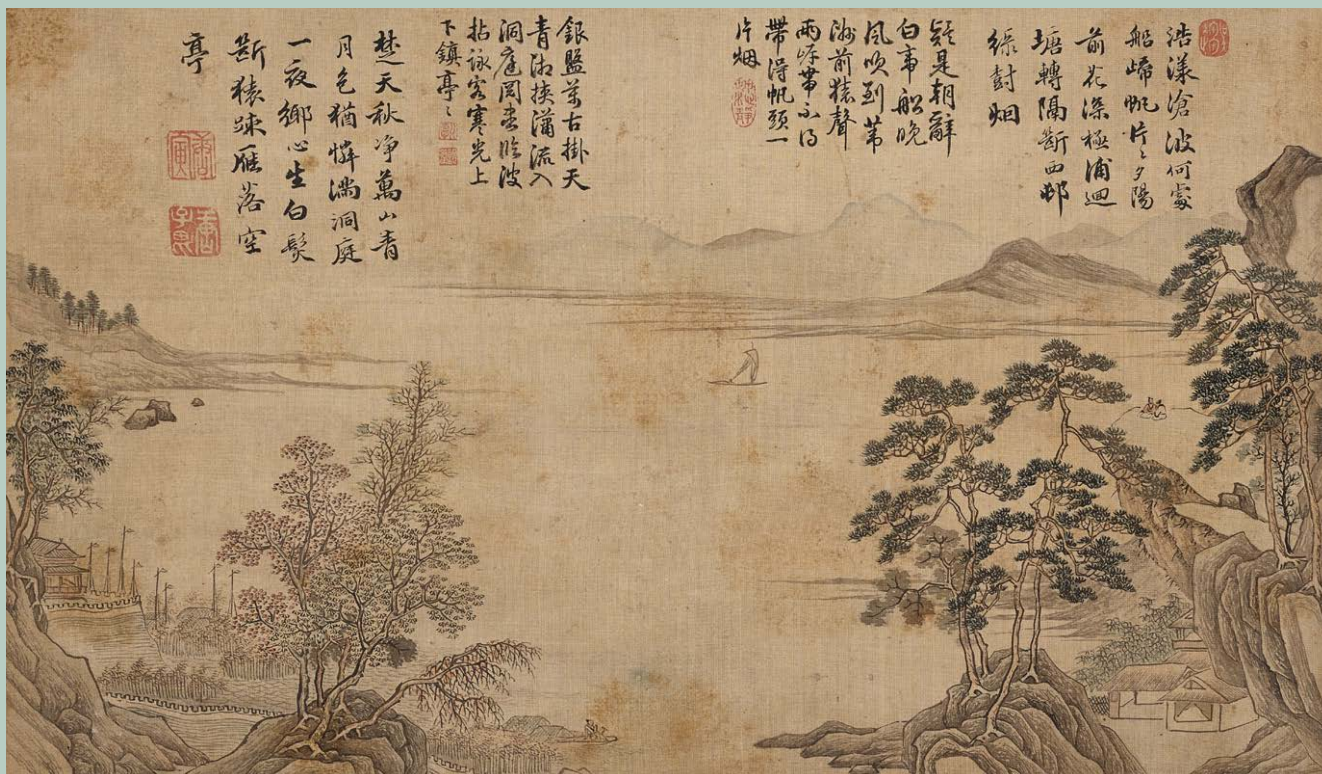 浩漾滄波何處
船歸帆片々夕陽
前花深極浦迴
塘轉隔斷西邨
綠封烟
疑是朝辭
白帝船晚
風吹到葦
洲前猿聲
兩岸帶不得
帶得帆頭一
片烟
銀盤萬古掛天
青湘挾瀟流入
洞庭閱盡臨波
拈詠客寒光上
下鎮亭々
楚天秋净萬山青
月色猶憐滿洞庭
一夜鄉心生白髮
斷猿疎雁落空
亭
唐寅
唐子畏